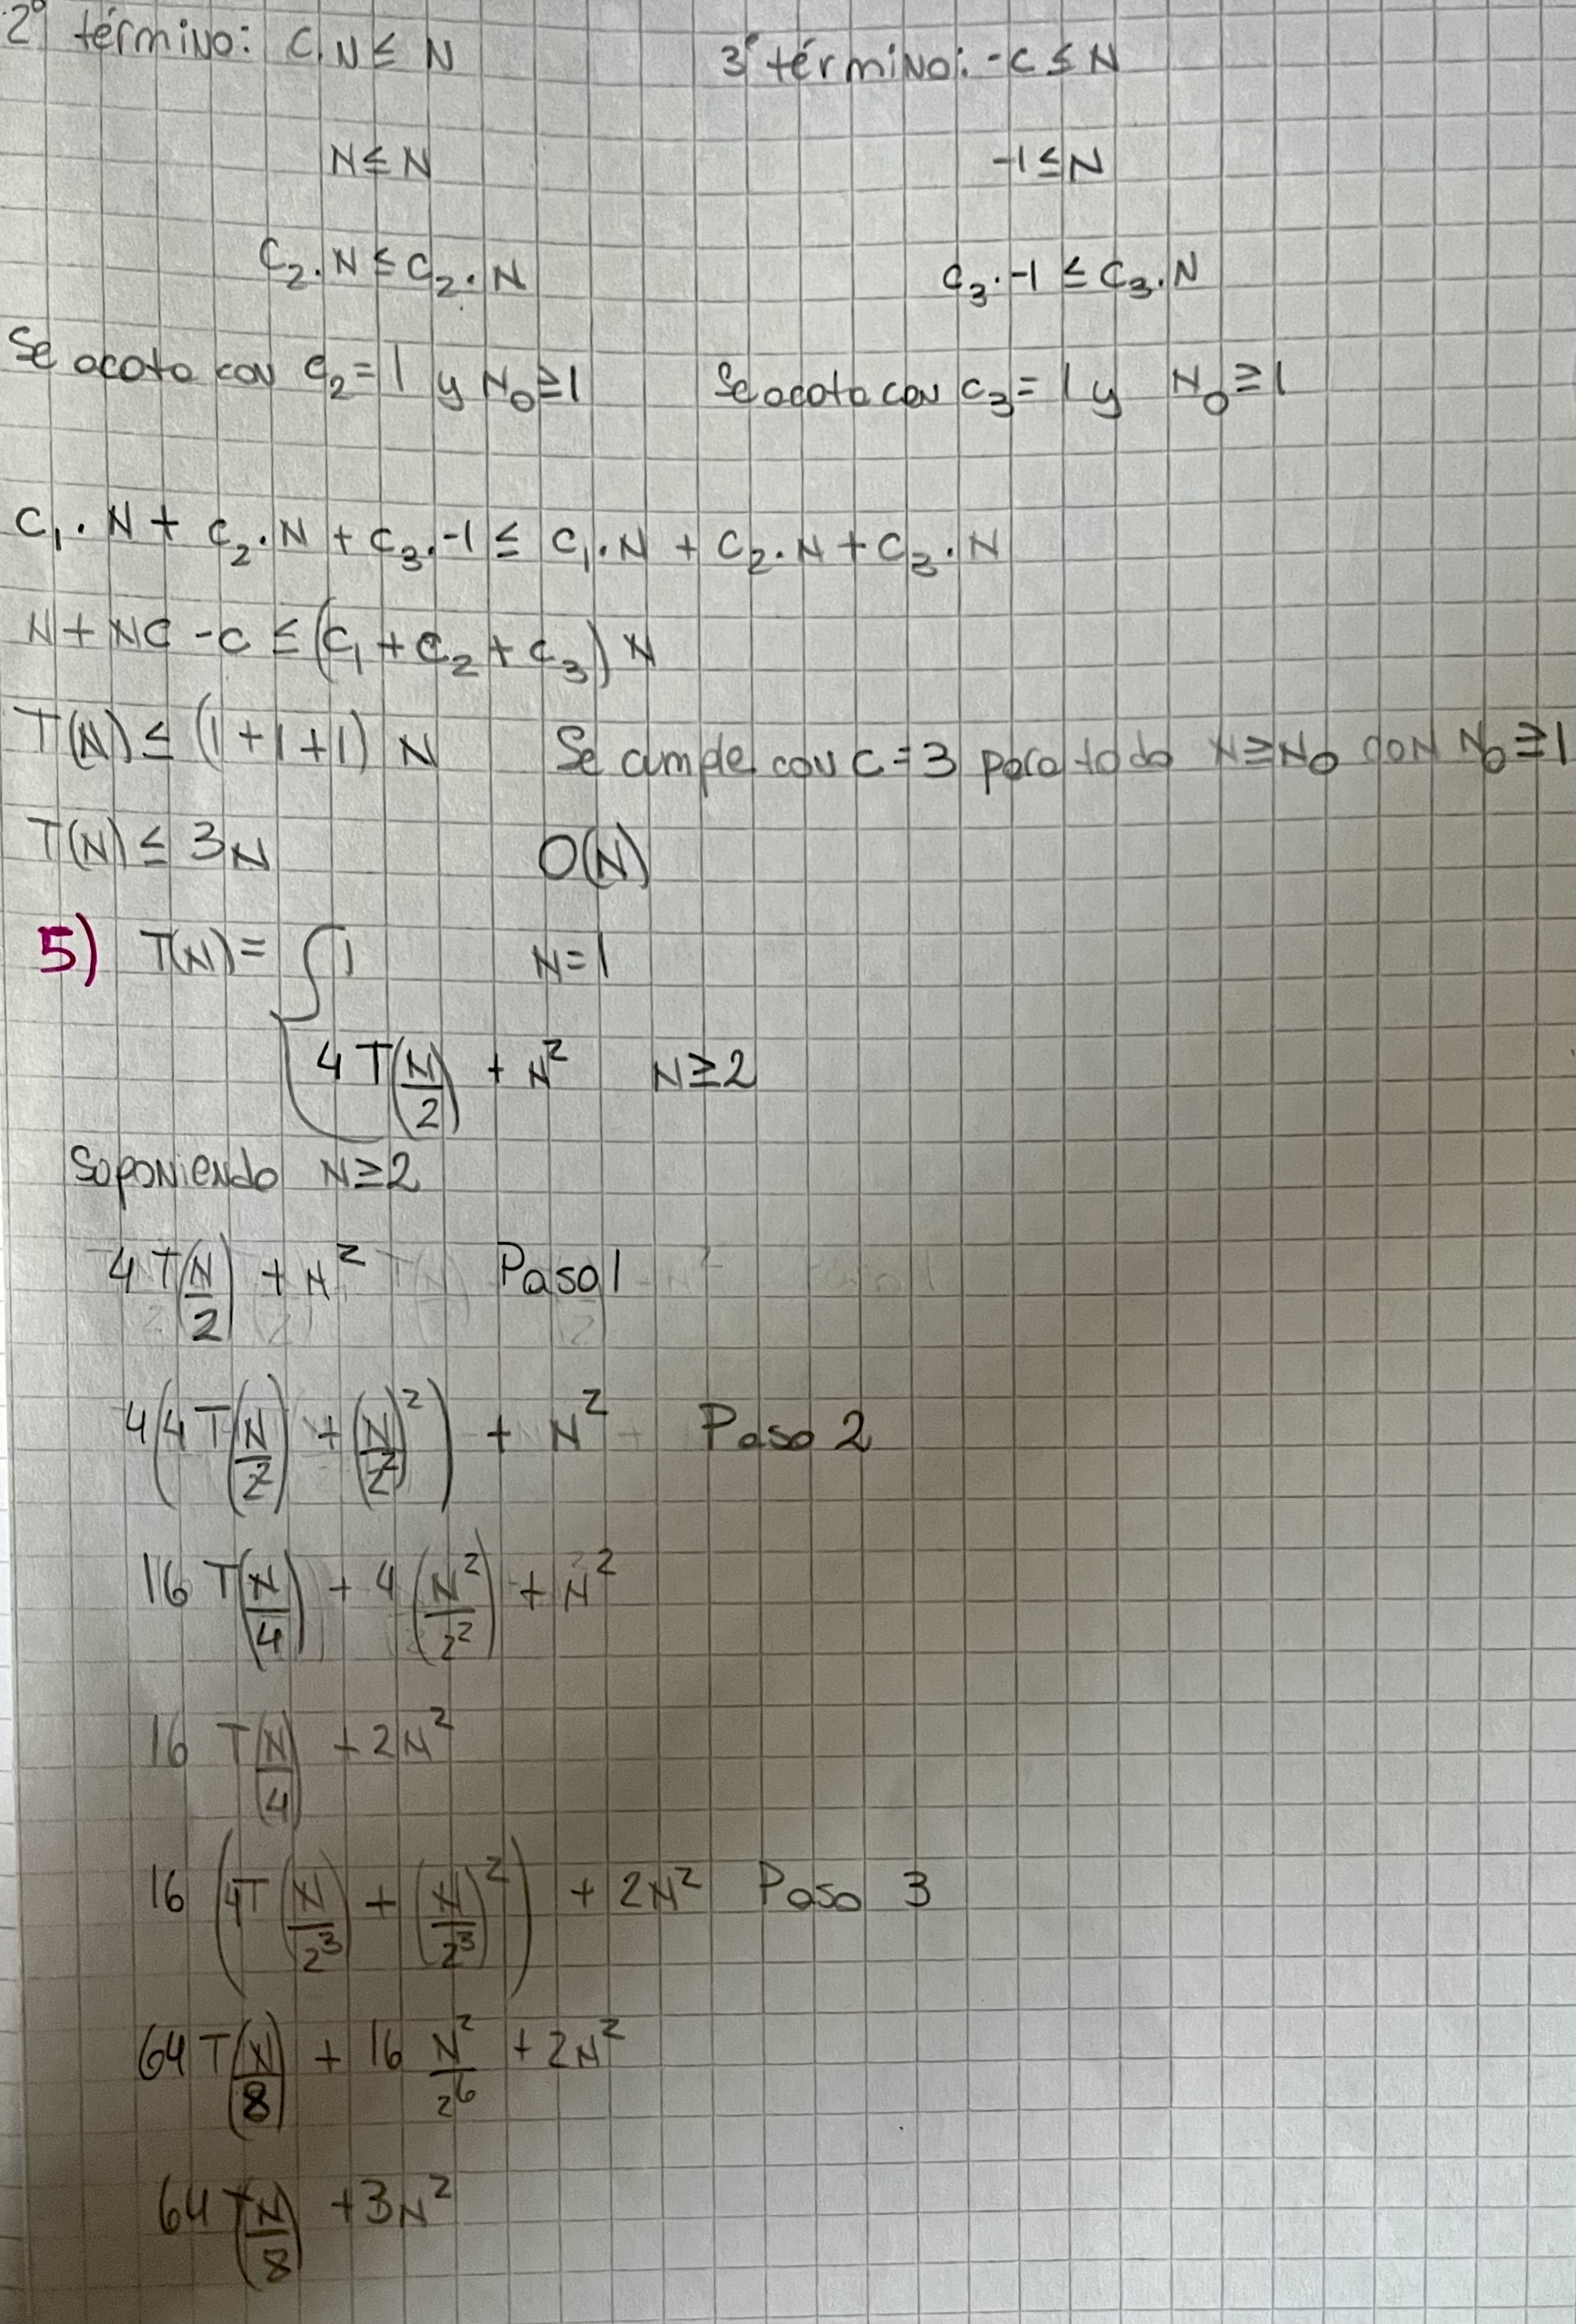 2º término: C.N ≤ N
3º término: -C ≤ N
N ≤ N
-1 ≤ N
C₂.N ≤ C₂.N
C₃.-1 ≤ C₃.N
Se acota con C₂=1 y N₀≥1
Se acota con C₃=1 y N₀≥1
C₁.N + C₂.N + C₃.-1 ≤ C₁.N + C₂.N + C₃.N
N + NC - C ≤ (C₁ + C₂ + C₃) N
T(N) ≤ (1+1+1) N
Se cumple con C=3 para todo N≥N₀ con N₀≥1
T(N) ≤ 3N
O(N)
5) T(N) = { 1 N=1
4T(N/2) + N² N≥2
Soponiendo N≥2
4T(N/2) + N² Paso 1
4(4T(N/2) + (N/2)²) + N² Paso 2
16 T(N/4) + 4(N²/2²) + N²
16 T(N/4) + 2N²
16 (4T(N/2³) + (N/2³)²) + 2N² Paso 3
64 T(N/8) + 16 N²/2⁶ + 2N²
64 T(N/8) + 3N²